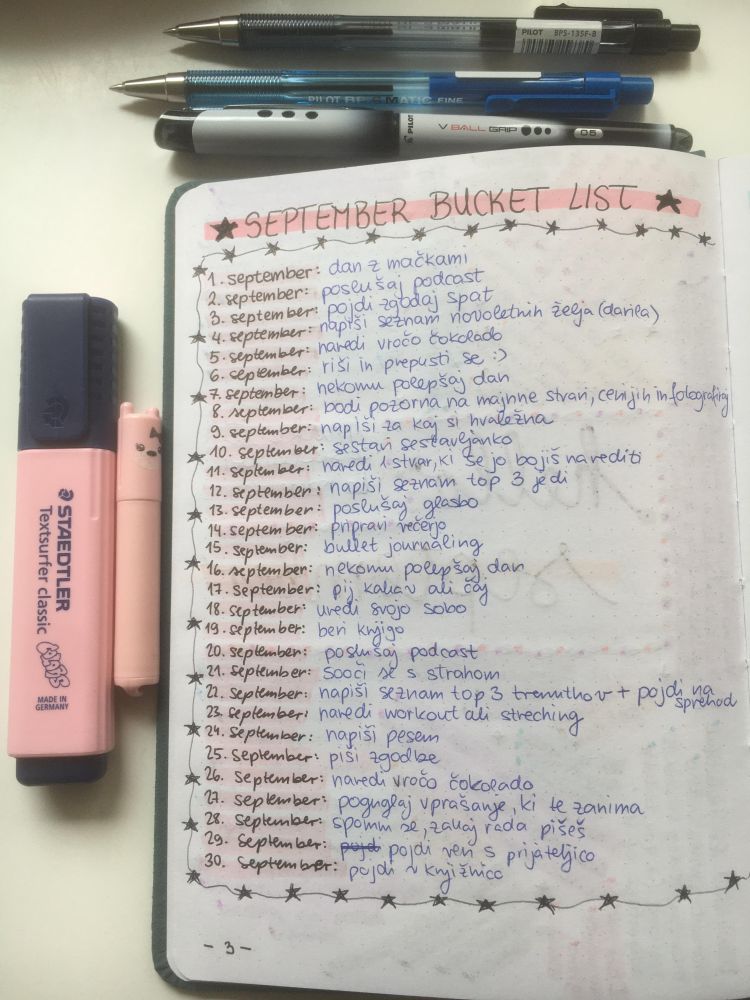 PILOT BPS-135F-B
PILOT BP-S MATIC FINE
PILOT V BALL GRIP 05
★ SEPTEMBER BUCKET LIST ★
1. september: dan z mačkami
2. september: poslušaj podcast
3. september: pojdi zgodaj spat
4. september: napiši seznam novoletnih želja (darila)
5. september: naredi vročo čokolado
6. september: riši in prepusti se :)
7. september: nekomu polepšaj dan
8. september: bodi pozorna na majhne stvari, ceni jih in fotografiraj
9. september: napiši za kaj si hvaležna
10. september: sestavi sestavljanko
11. september: naredi 1 stvar, ki se jo bojiš narediti
12. september: napiši seznam top 3 jedi
13. september: poslušaj glasbo
14. september: pripravi večerjo
15. september: bullet journaling
16. september: nekomu polepšaj dan
17. september: pij kakav ali čaj
18. september: uredi svojo sobo
19. september: beri knjigo
20. september: poslušaj podcast
21. september: sooči se s strahom
22. september: napiši seznam top 3 trenutkov + pojdi na
sprehod
23. september: naredi workout ali streching
24. september: napiši pesem
25. september: piši zgodbe
26. september: naredi vročo čokolado
27. september: poguglaj vprašanje, ki te zanima
28. september: spomni se, zakaj rada pišeš
29. september: pojdi pojdi ven s prijateljico
30. september: pojdi v knjižnico
- 3 -
STAEDTLER
Textsurfer classic
MADE IN
GERMANY